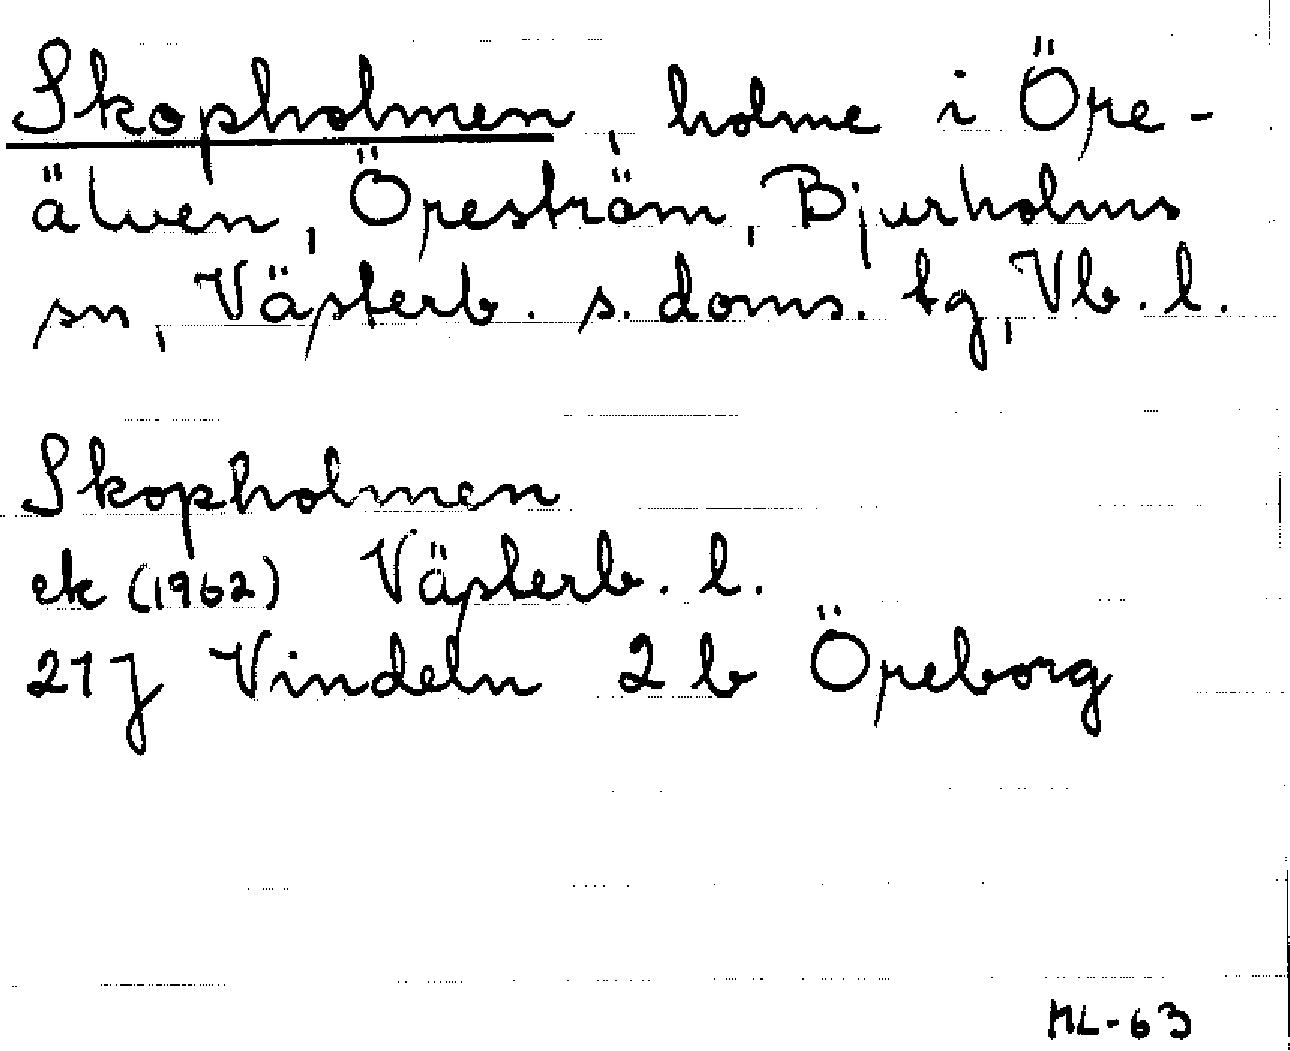 Skopholmen, holme i Öre-
älven, Öreström, Bjurholms
sn, Västerb. s. doms. tg, Vb. l.
Skopholmen
ek (1962) Västerb. l.
21 J Vindeln 2 b Öreborg
ML-63